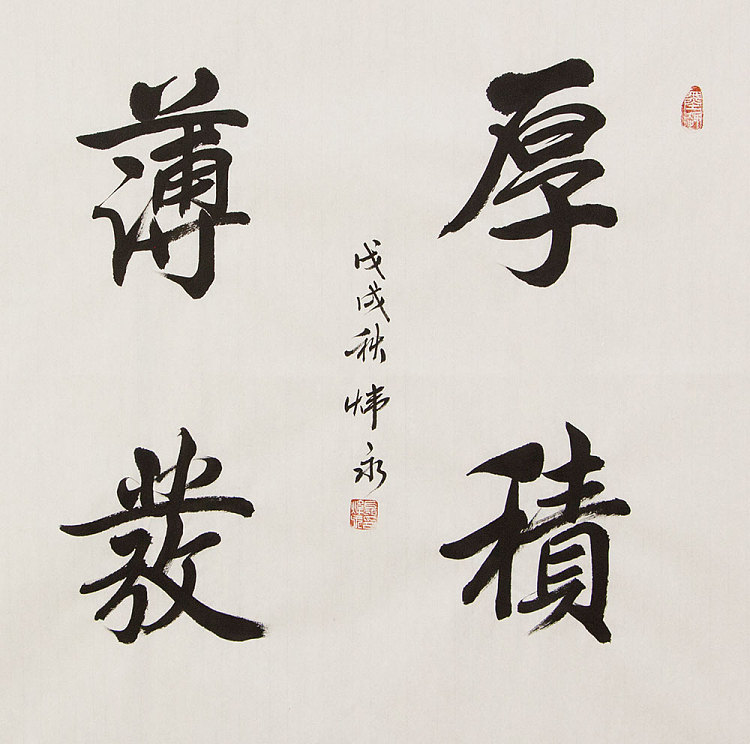 厚積
薄發
戊戌秋煒永